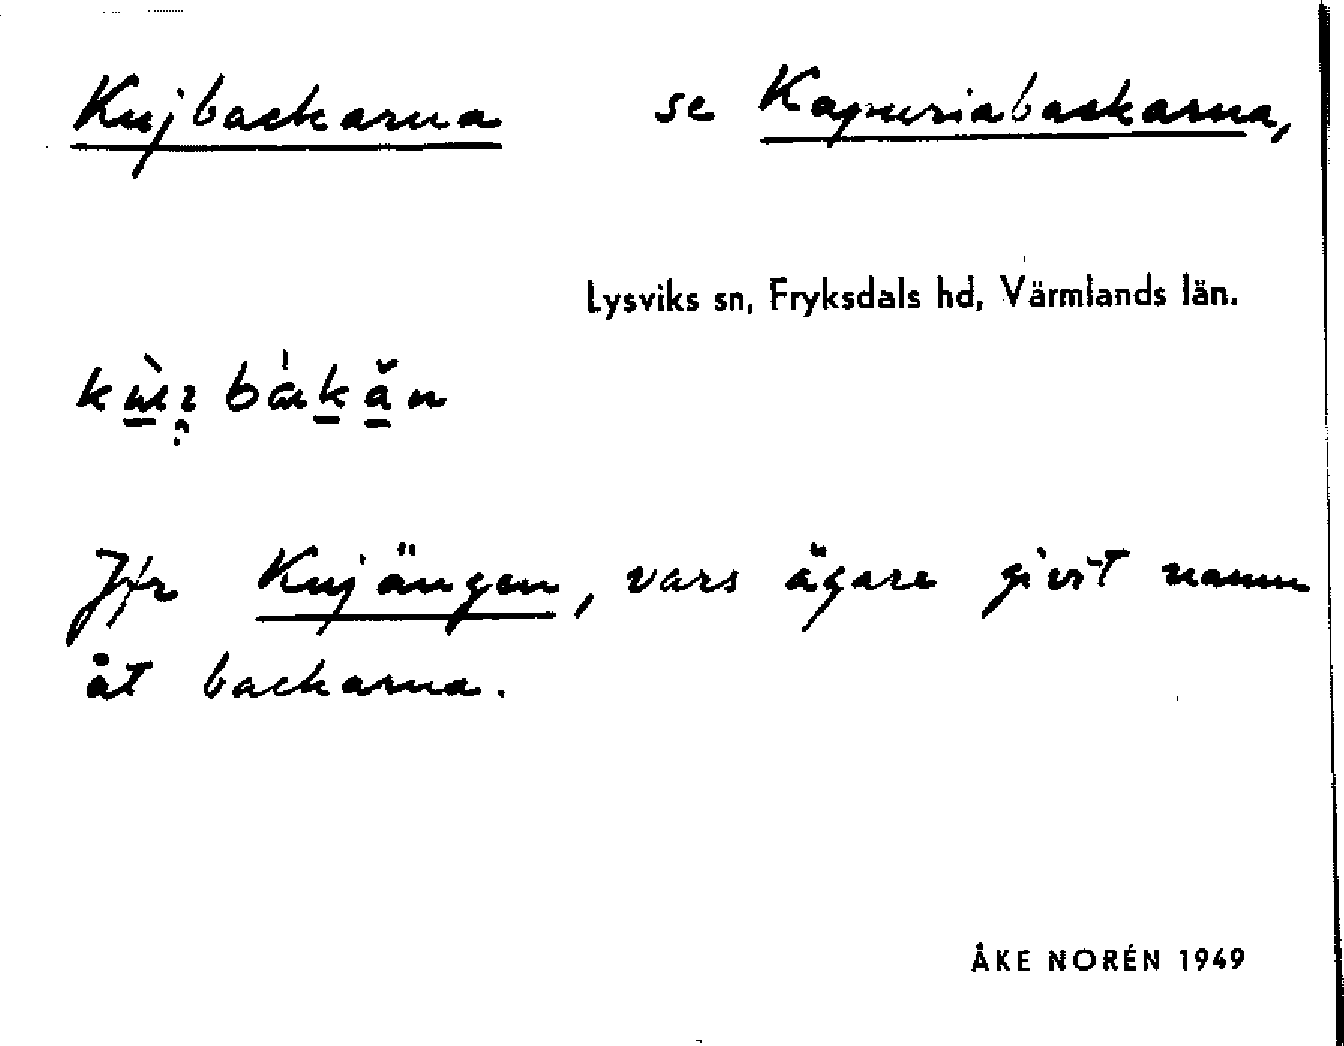 Kujbackarna se Kapuriabackarna,
Lysviks sn, Fryksdals hd, Värmlands län.
Jfr Kujängen, vars ägare givit namn
åt backarna.
ÅKE NORÉN 1949